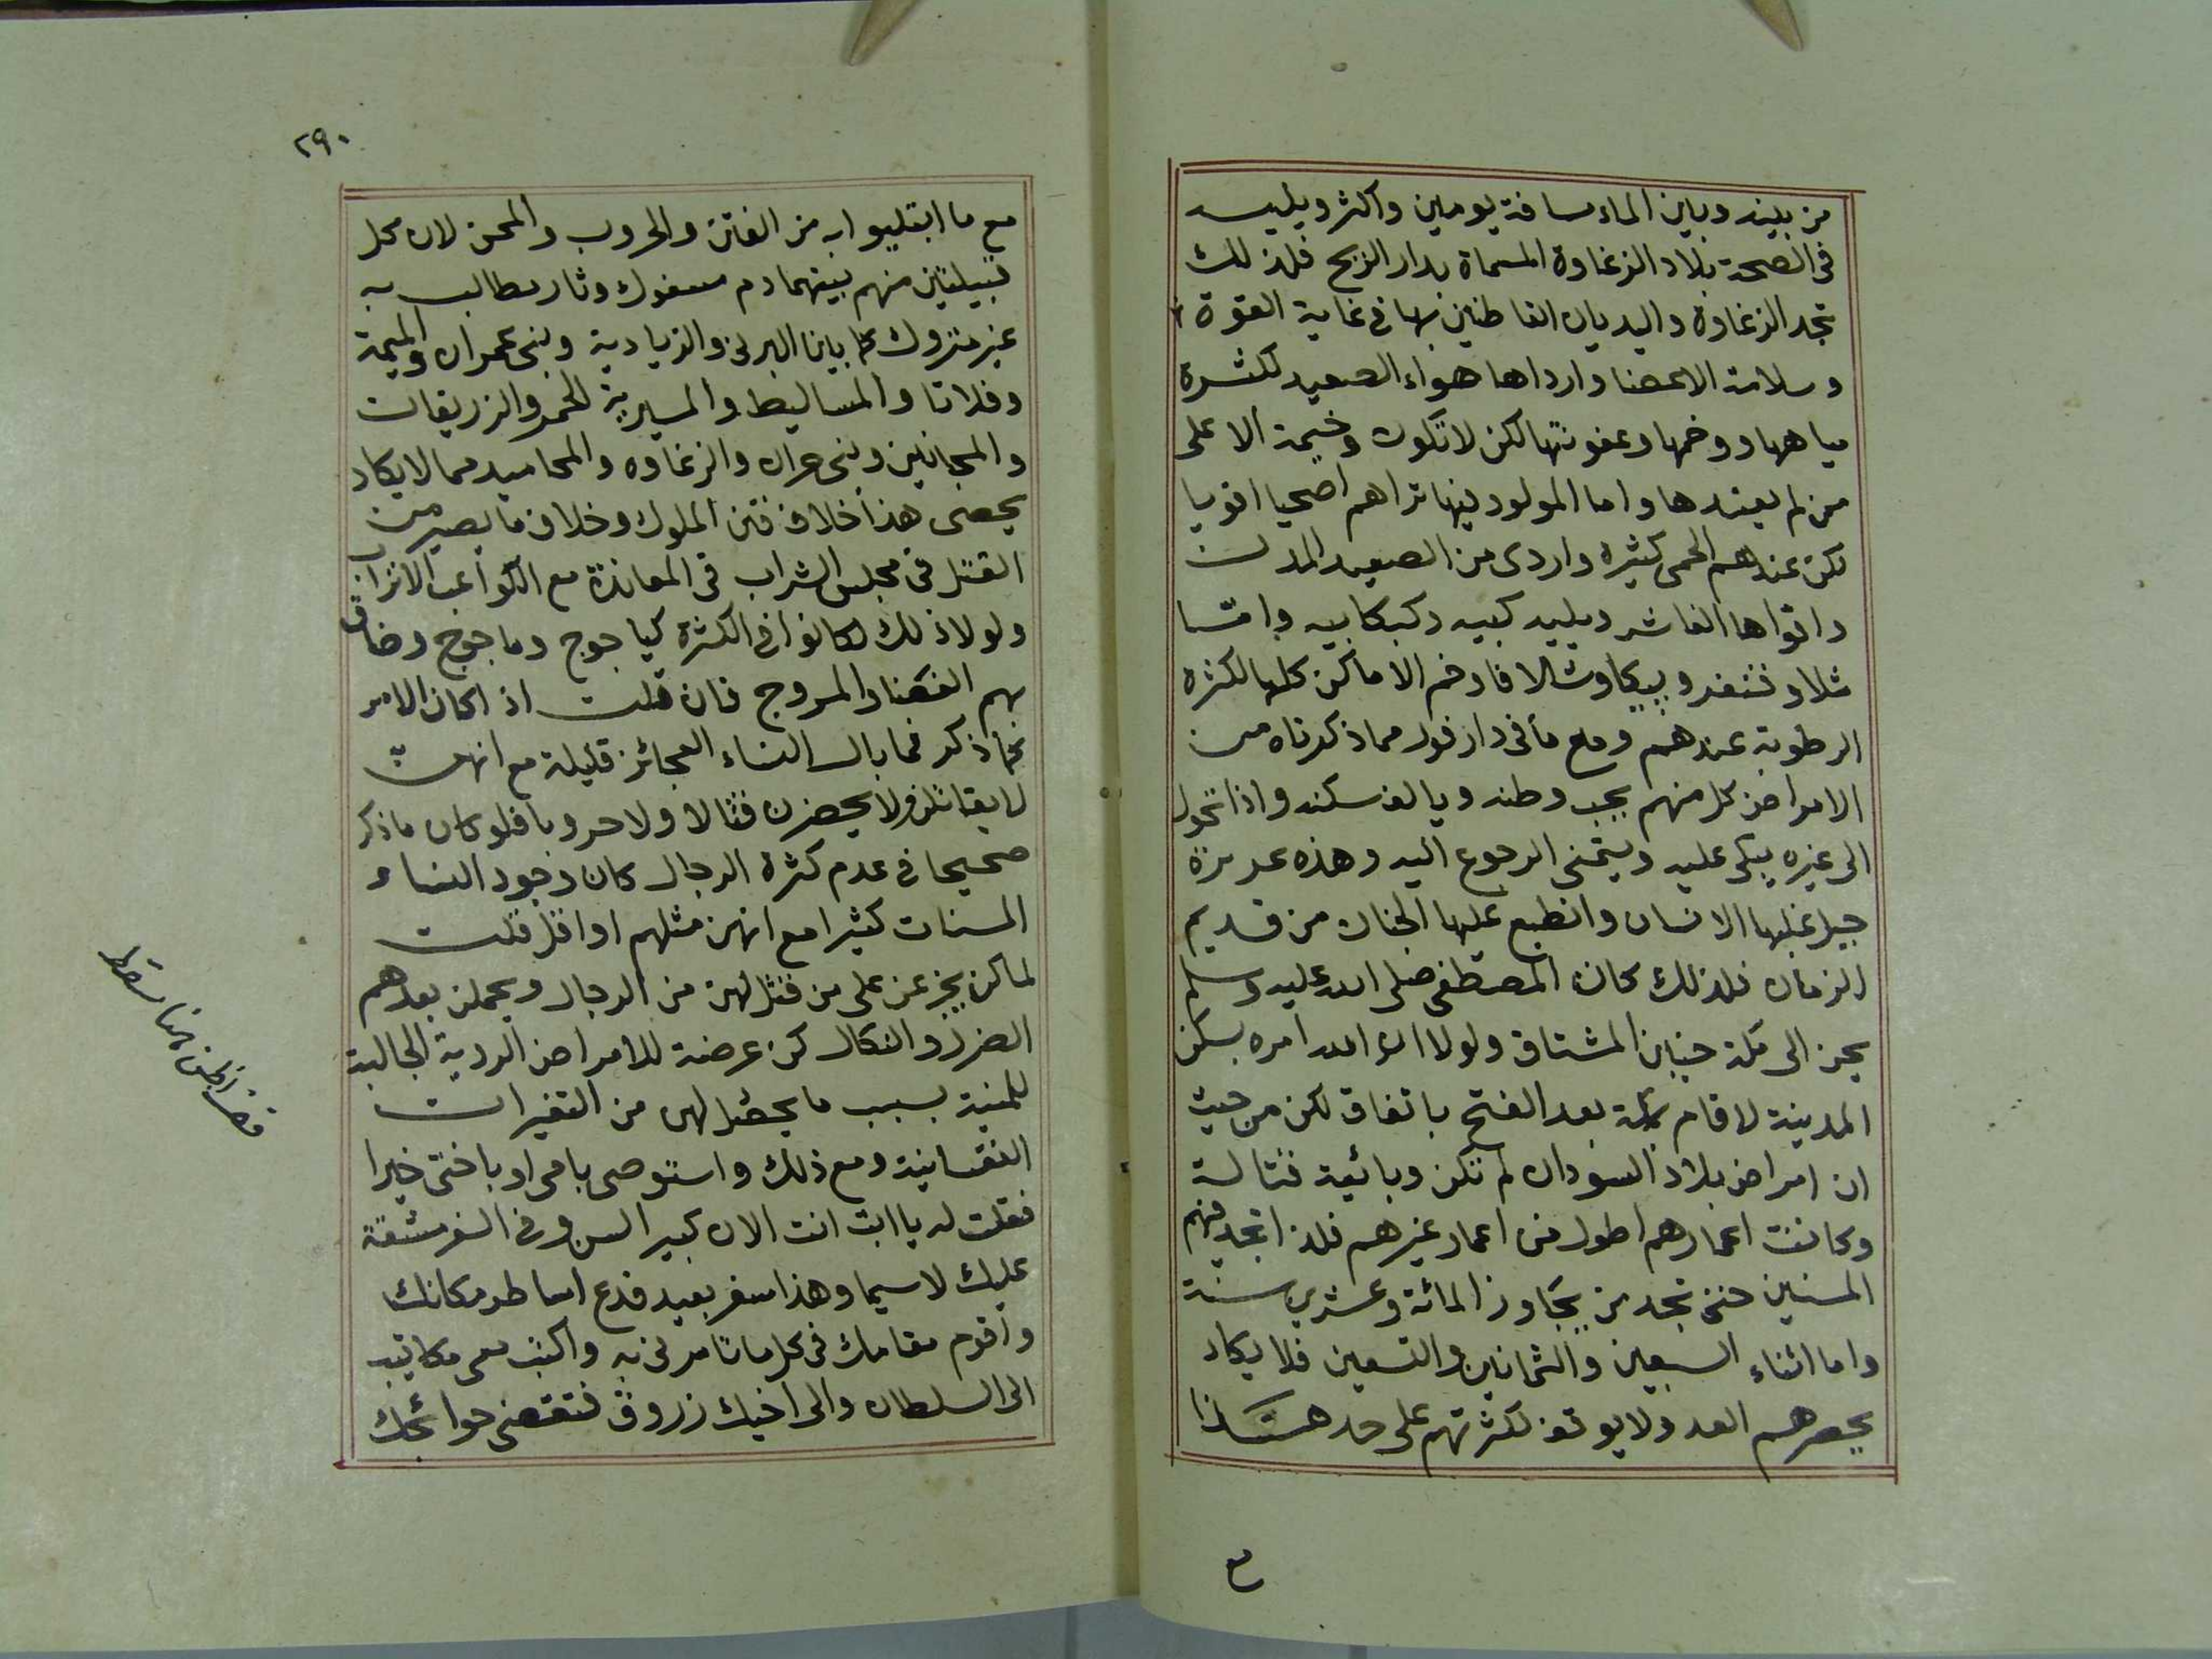 من بينه وبين الماء مسافة يومين واكثر ويليه
فى الصحة بلاد الزغاوة المسماة بدار الريح فلذلك
تجد الزغاوة والبديان القاطنين بها فى غاية القوة
وسلامة الاعضا وارداها هواء الصعيد لكثرة
مياهها ووخمها وعفونتها لكن لا تكون وخيمة الا على
من لم يعتدها واما المولود فيها تراهم اصحيا اقويا
لكن عندهم الحمى كثيرة واردى من الصعيد المدن
واقواها الفاشر ويليه كبيه وكبكابيه واما
مثلا وفنفرو وبيكا وشالا فاوخم الاماكن كلها لكثرة
الرطوبة عندهم ومع ما فى دارفور مما ذكرناه من
الامراض كل منهم يحب وطنه ويالف سكنه واذا تحول
الى غيره يبكى عليه ويتمنى الرجوع اليه وهذه غريزة
جبل عليها الانسان وانطبع عليها الجنان من قديم
الزمان فلذلك كان المصطفى صلى الله عليه وسلم
يحن الى مكة حنين المشتاق ولولا ان الله امره بسكن
المدينة لاقام بمكة بعد الفتح باتفاق لكن من حيث
ان امراض بلاد السودان لم تكن وبائية قتالة
وكانت اعمارهم اطول من اعمار غيرهم فلذا تجد فيهم
المسنين حتى تجد من يجاوز المائة وعشرين سنة
واما اثناء السبعين والثمانين والتسعين فلا يكاد
يحصرهم العد ولا يوقف لكثرتهم على حد هكذا
٢٩٠
مع ما ابتليوا به من الفتن والحروب والمحن لان كل
قبيلتين منهم بينهما دم مسفوك وثار مطالب به
غير متروك كما بين البرتى والزيادية وبنى عمران والميمة
وفلاتا والمساليط والمسيرية الحمر والرزيقات
والمجانين وبنى جرار والزغاوه والمحاميد مما لا يكاد
يحصى هذا خلاف فتن الملوك وخلاف ما يصير من
القتل فى مجلس الشراب فى المعاندة مع الكواعب الاتراب
ولولا ذلك لكانوا فى الكثرة كياجوج وماجوج وضاق
بهم الفضا والمروج فان قلت اذا كان الامر
كما ذكر فما بال النساء العجائز قليلة مع انهن
لا يقاتلن ولا يحضرن قتالا ولا حروبا فلو كان ما ذكر
صحيحا فى عدم كثرة الرجال كان وجود النساء
المسنات كثيرا مع انهن مثلهم او اقل قلت
لما كن يجزعن على من قتل لهن من الرجال ويحملن بعدهم
الضرر والنكال كن عرضة للامراض الردية الجالبة
للمنية بسبب ما يحصل لهن من التغيرات
النفسانية ومع ذلك واستوصى بامى او باختى خيرا
فقلت له يا ابت انت الان كبير السن وفى السفر مشقة
عليك لا سيما وهذا سفر بعيد فدع اسافر مكانك
واقوم مقامك فى كل ما تامرنى به واكتب معى مكاتيب
الى السلطان والى اخيك زروق فتقضى حوائجك
هنا سقط